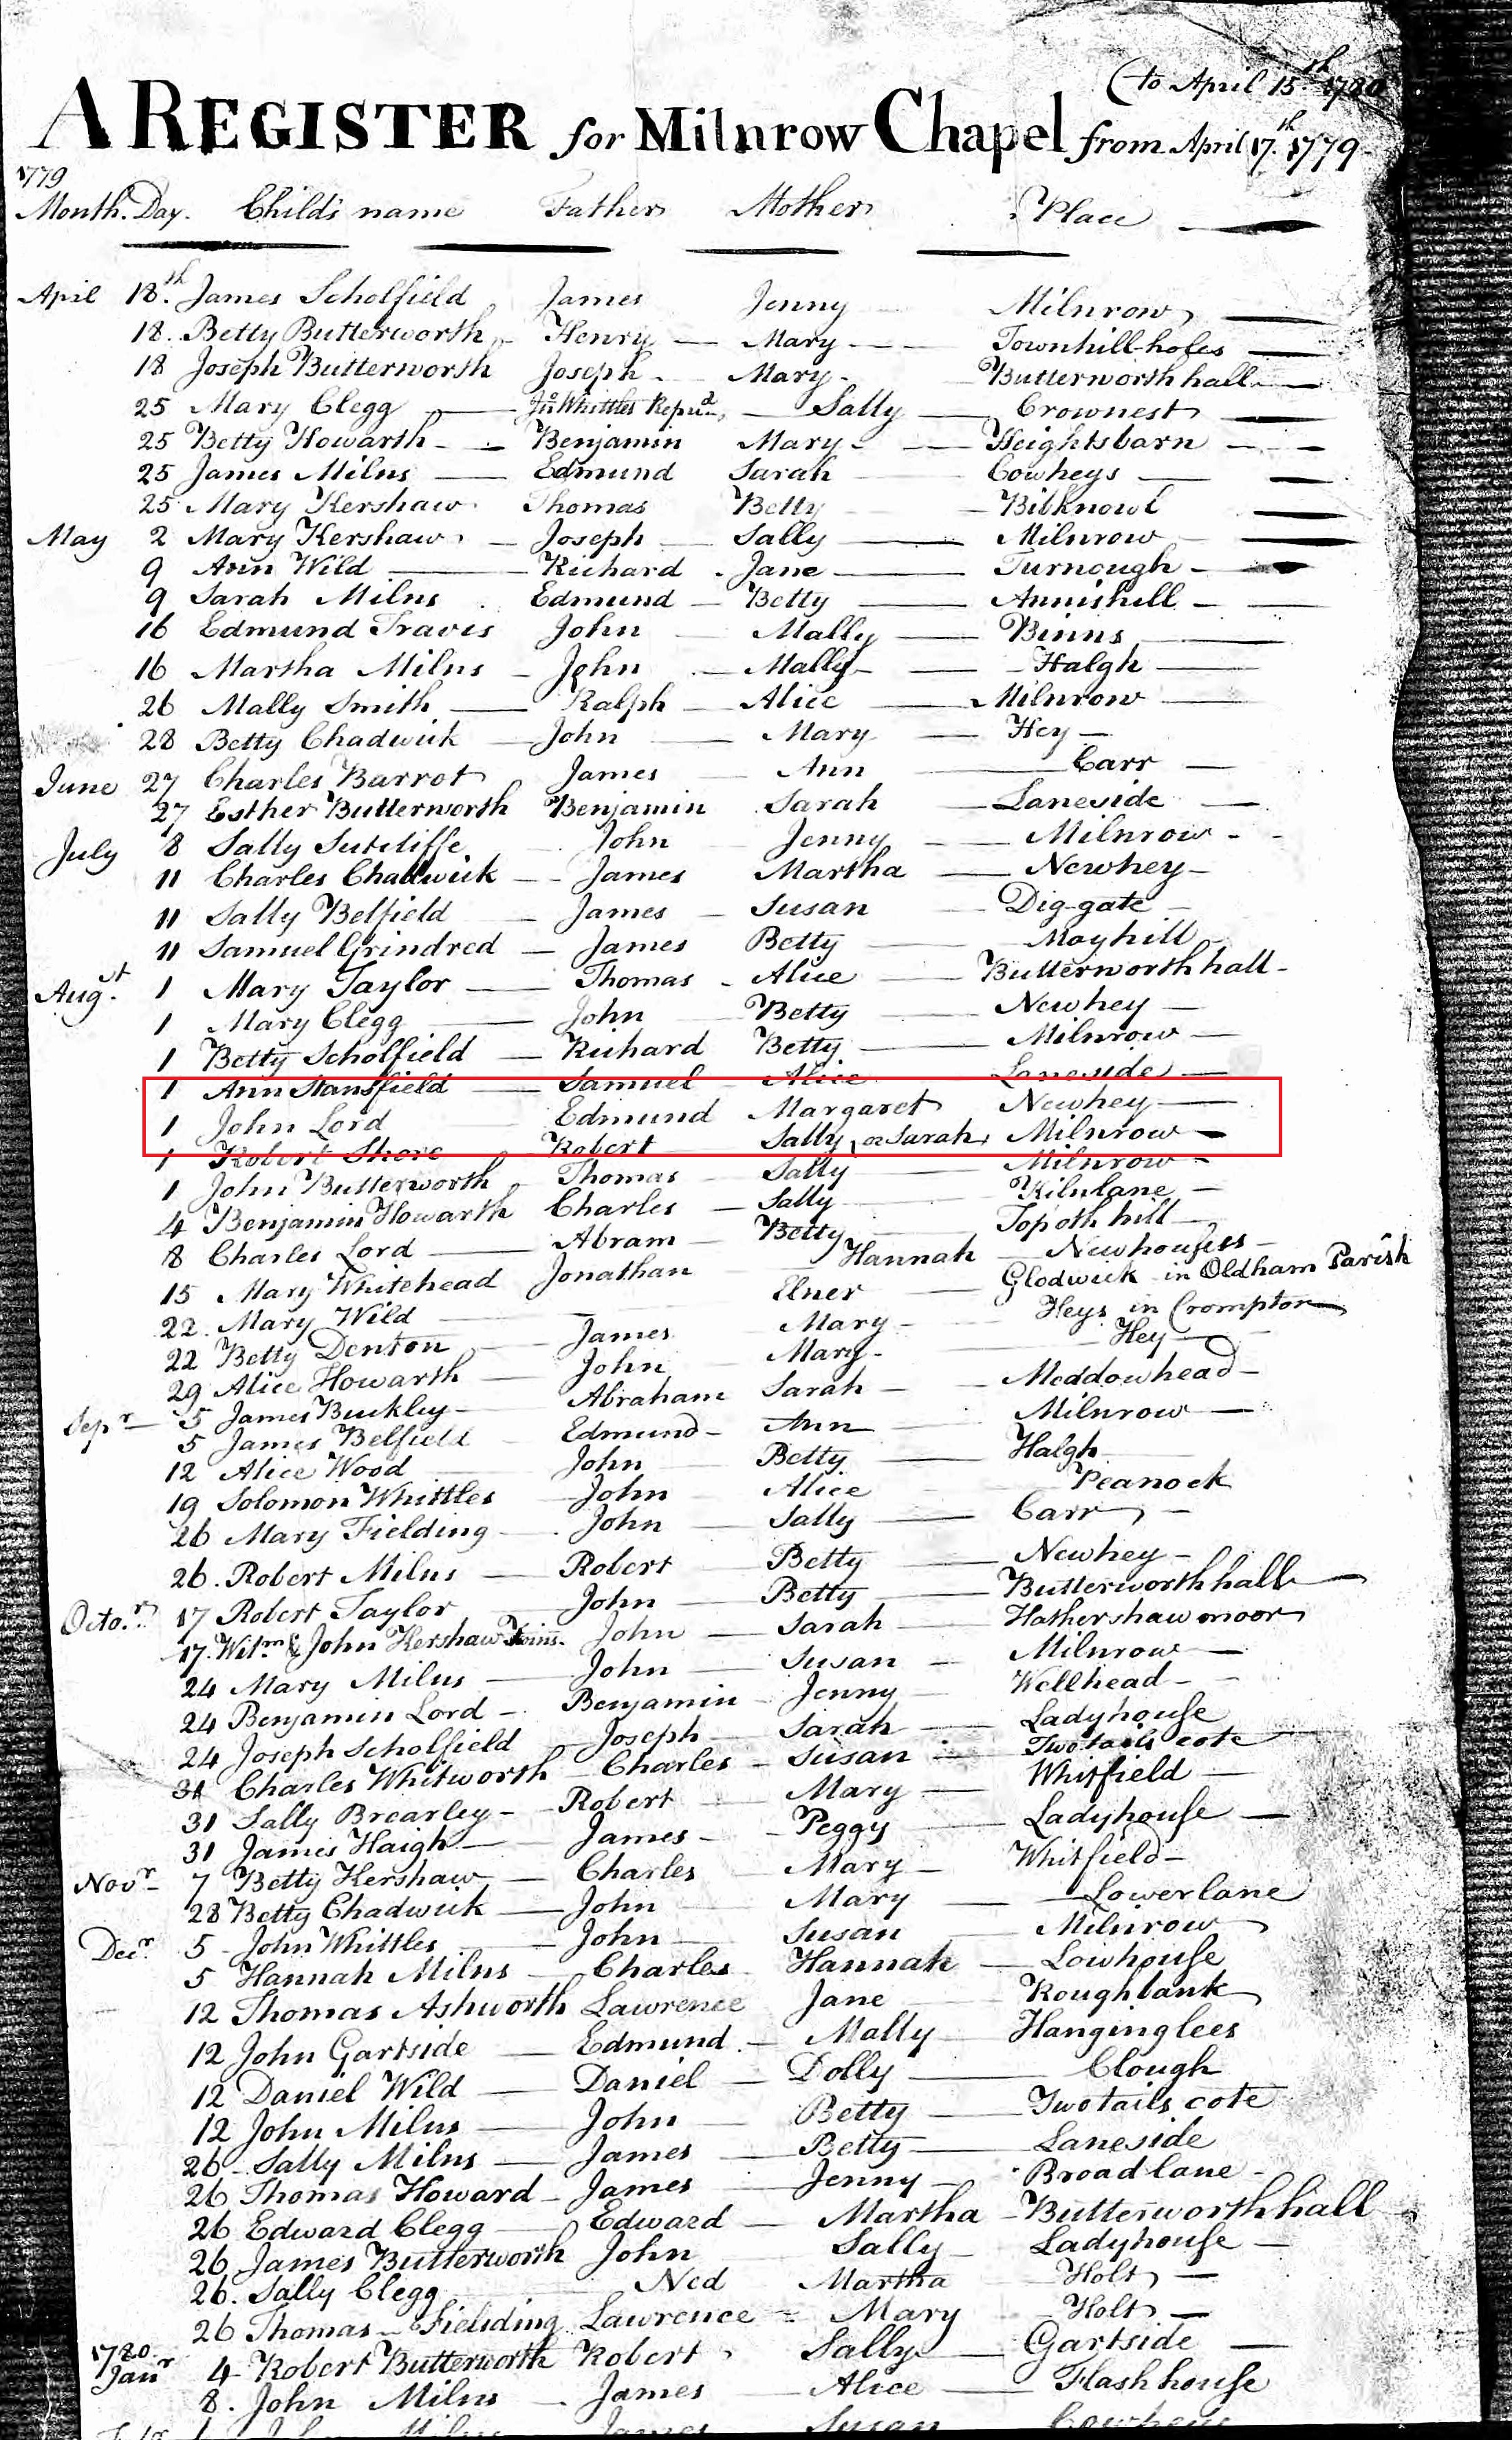 (to April 15th 1780
A REGISTER for Milnrow Chapel from April 17th 1779
1779
Month. Day. Child's name Father Mother Place
April 18th James Scholfield James Jenny Milnrow
18. Betty Butterworth Henry Mary Townhill holes
18 Joseph Butterworth Joseph Mary Butterworth hall
25 Mary Clegg Jno Whittles Repu'd Sally Crownest
25 Betty Howarth Benjamin Mary Heightsbarn
25 James Milns Edmund Sarah Cowheys
25 Mary Kershaw Thomas Betty Bibknowl
May 2 Mary Kershaw Joseph Sally Milnrow
9 Ann Wild Richard Jane Turnough
9 Sarah Milns Edmund Betty Annishill
16 Edmund Travis John Mally Binns
16 Martha Milns John Mally Halgh
26 Mally Smith Ralph Alice Milnrow
28 Betty Chadwick John Mary Hey
June 27 Charles Barrot James Ann Carr
27 Esther Butterworth Benjamin Sarah Laneside
July 8 Sally Sutcliffe John Jenny Milnrow
11 Charles Chadwick James Martha Newhey
11 Sally Belfield James Susan Dig-gate
11 Samuel Grindred James Betty Moyhill
Augst. 1 Mary Taylor Thomas Alice Butterworth hall
1 Mary Clegg John Betty Newhey
1 Betty Scholfield Richard Betty Milnrow
1 Ann Stansfield Samuel Alice Laneside
1 John Lord Edmund Margaret Newhey
1 Robert Shore Robert Sally or Sarah Milnrow
1 John Butterworth Thomas Sally Milnrow
4 Benjamin Howarth Charles Sally Kilnlane
8 Charles Lord Abram Betty Top oth hill
15 Mary Whitehead Jonathan Hannah Newhouses
22. Mary Wild Elner Glodwick in Oldham Parish
22 Betty Denton James Mary Heys in Crompton
29 Alice Howarth John Mary Hey
Sepr 5 James Buckley Abraham Sarah Meddowhead
5 James Belfield Edmund Ann Milnrow
12 Alice Wood John Betty Halgh
19 Solomon Whittles John Alice Peanock
26 Mary Fielding John Sally Carr
26. Robert Milns Robert Betty Newhey
Octo.r 17 Robert Taylor John Betty Butterworth hall
17. Wilm & John Kershaw Twins. John Sarah Hathershaw moor
24 Mary Milns John Susan Milnrow
24 Benjamin Lord Benjamin Jenny Wellhead
24 Joseph Scholfield Joseph Sarah Ladyhouse
31 Charles Whitworth Charles Susan Twotails cote
31 Sally Brearley Robert Mary Whitfield
31 James Haigh James Peggy Ladyhouse
Novr 7 Betty Kershaw Charles Mary Whitfield
28 Betty Chadwick John Mary Lowerlane
Decr. 5 John Whittles John Susan Milnrow
5 Hannah Milns Charles Hannah Lowhouse
12 Thomas Ashworth Lawrence Jane Roughbank
12 John Gartside Edmund Mally Hanginglees
12 Daniel Wild Daniel Dolly Clough
12 John Milns John Betty Twotails cote
26 Sally Milns James Betty Laneside
26 Thomas Howard James Jenny Broadlane
26 Edward Clegg Edward Martha Butterworth hall
26 James Butterworth John Sally Ladyhouse
26. Sally Clegg Ned Martha Holt
26 Thomas Fielding Lawrence Mary Holt
1780
Janr 4 Robert Butterworth Robert Sally Gartside
8. John Milns James Alice Flash house
James Susan Cowheys